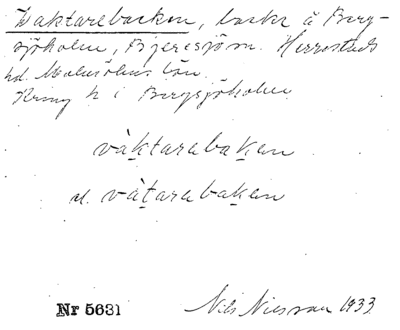 Vaktarebacken, backe å Berg-
sjöholm, Bjeresjö sn. Herrestads
hd. Malmöhus län.
Kring h i Bergsjöholm
väktarebaken
el. vätarebaken
Nr 5631 Nils Nilsson 1933